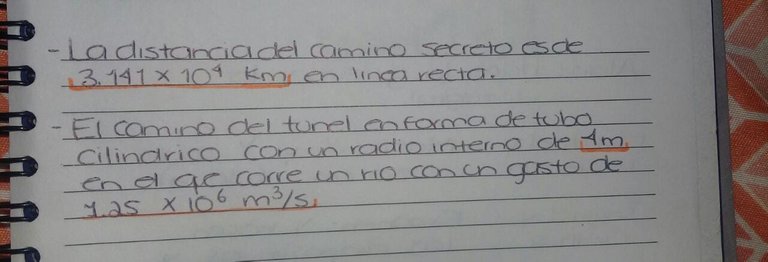 - La distancia del camino secreto es de
3.141 x 10⁴ Km, en linea recta.
- El camino del tunel en forma de tubo
cilindrico con un radio interno de 4m,
en el qe corre un rio con un gasto de
1.25 x 10⁶ m³/s,